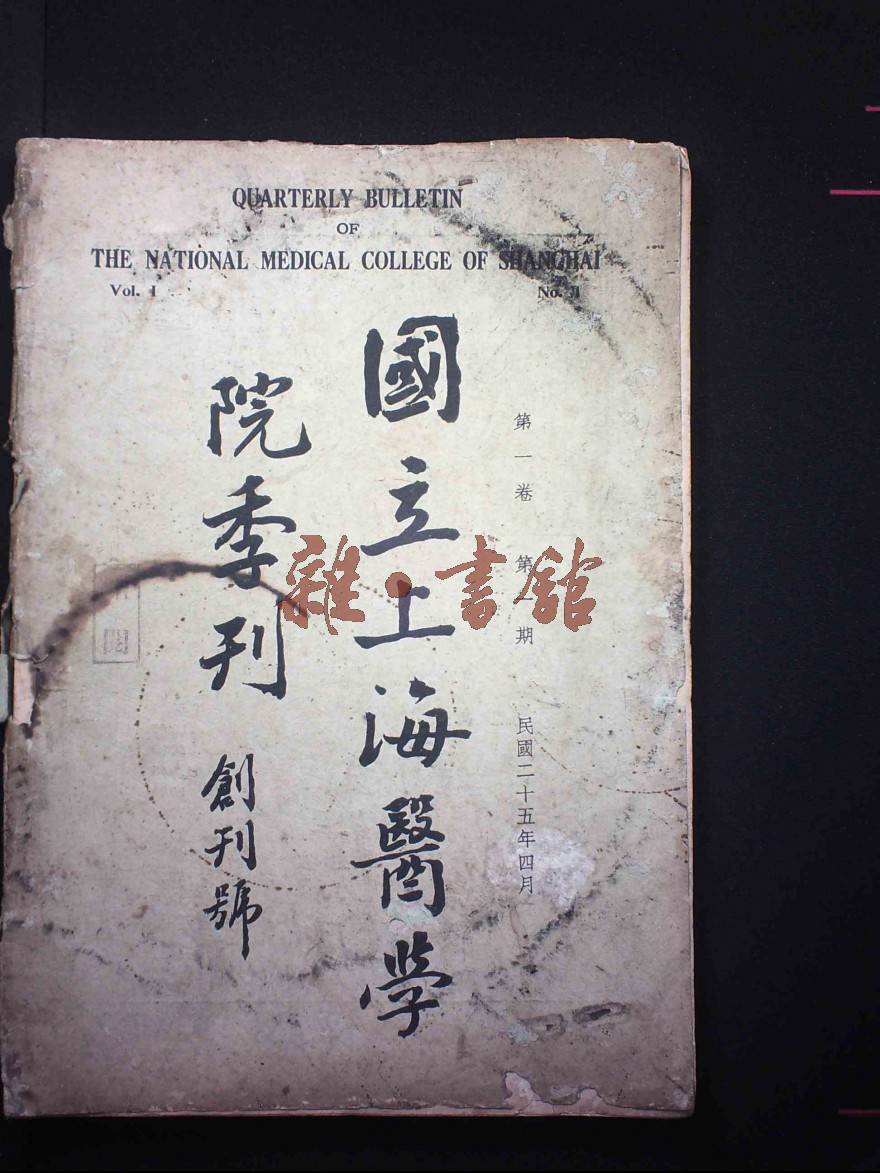 QUARTERLY BULLETIN
OF
THE NATIONAL MEDICAL COLLEGE OF SHANGHAI
Vol. I
No. 1
第一卷 第一期 民國二十五年四月
國立上海醫學
院季刊 創刊號
雜·書館